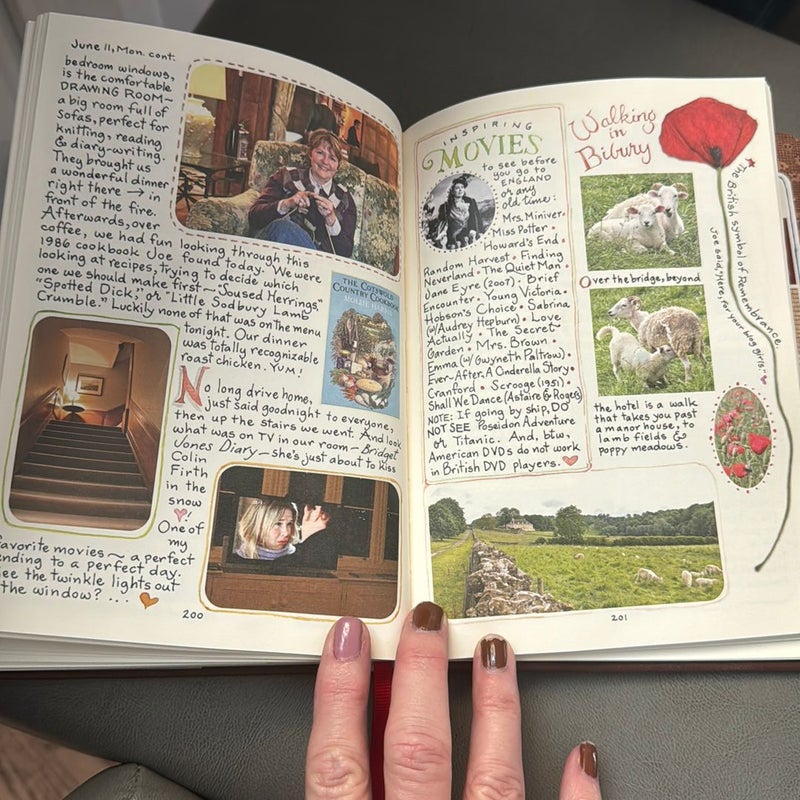 June 11, Mon. cont.
bedroom windows,
is the comfortable
DRAWING ROOM ~
a big room full of
sofas, perfect for
knitting, reading
& diary-writing.
They brought us
a wonderful dinner
right there → in
front of the fire.
Afterwards, over
coffee, we had fun looking through this
1986 cookbook Joe found today. We were
looking at recipes, trying to decide which
one we should make first ~ "Soused Herrings,"
"Spotted Dick," or "Little Sodbury Lamb
Crumble." Luckily none of that was on the menu
tonight. Our dinner
was totally recognizable
roast chicken. YUM!
THE COTSWOLD
COUNTRY COOKBOOK
No long drive home,
just said goodnight to everyone,
then up the stairs we went. And look
what was on TV in our room ~ Bridget
Jones Diary ~ she's just about to kiss
Colin
Firth
in the
snow
♥!
One of
my
favorite movies ~ a perfect
ending to a perfect day.
See the twinkle lights out
the window? ...
200
INSPIRING
MOVIES
to see before
you go to
ENGLAND
or any
old time:
Mrs. Miniver •
Miss Potter •
Howard's End •
Random Harvest • Finding
Neverland • The Quiet Man •
Jane Eyre (2007) • Brief
Encounter • Young Victoria •
Hobson's Choice • Sabrina
(w/Audrey Hepburn) • Love
Actually • The Secret
Garden • Mrs. Brown •
Emma (w/ Gwyneth Paltrow) •
Ever-After, A Cinderella Story •
Cranford • Scrooge (1951) •
Shall We Dance (Astaire & Rogers)
NOTE: If going by ship, DO
NOT SEE Poseidon Adventure
or Titanic. And, btw,
American DVDs do not work
in British DVD players. ♥
Walking
in
Bibury
Over the bridge, beyond
the hotel is a walk
that takes you past
a manor house, to
lamb fields &
poppy meadows.
The British symbol of Remembrance.
Joe said, "Here, for your blog girls." ♥
201